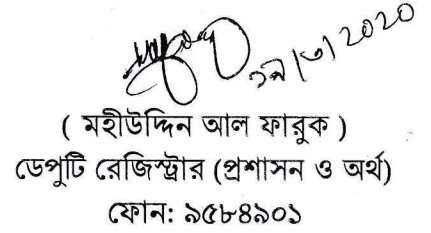 ( মহীউদ্দিন আল ফারুক )
ডেপুটি রেজিস্ট্রার (প্রশাসন ও অর্থ)
ফোন: ৯৫৮৪৯০১